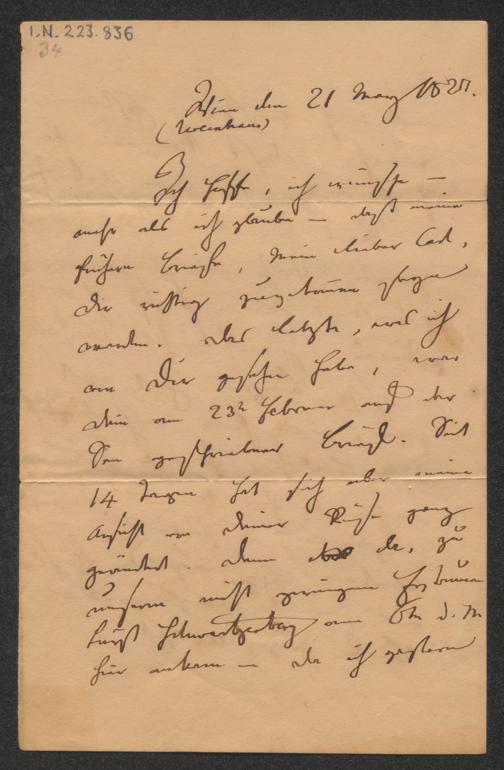 I.N. 223.836
34
Wien den 21 März 18
Ich hoffe, ich wünsche –
mehr als ich glaube – daß meine
frühern Briefe, mein lieber
Dir richtig zugekommen
werden. Das letzte, was ich
von Dir gesehen habe, war
Dein am 23t Februar auf der
See geschriebener Brief. Seit
14 Tagen hat sich aber meine
Ansicht von Deiner Reise ganz
geändert. Denn da, zu
unserm nicht geringen Erstaunen
Fürst Schwartzenberg am 6tn d. M
hier ankam – da ich gestern